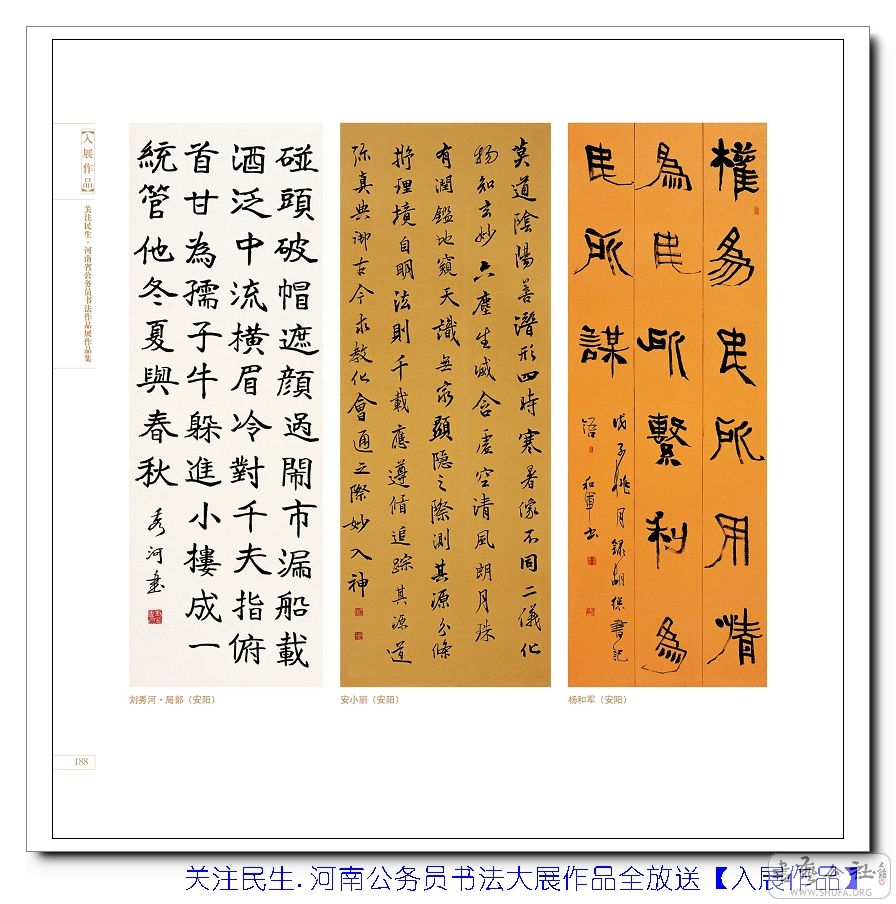 【入展作品】
关注民生·河南省公务员书法作品展作品集
碰頭破帽遮顏過鬧市漏船載
酒泛中流橫眉冷對千夫指俯
首甘為孺子牛躲進小樓成一
統管他冬夏與春秋
秀河書
刘秀河·局部（安阳）
莫道陰陽善潛形四時寒暑像不同二儀化
物知玄妙六塵生滅含虛空清風朗月珠
有潤鑑地窺天識無窮顯隱之際測其源分條
析理境自明法則千載應遵循追踪其源道
弥真典御古今求教化會通之際妙入神
安小丽（安阳）
權為民所用情
為民所繫利為
民所謀
戊子桃月錄胡總書記
語 和軍書
杨和军（安阳）
188
关注民生.河南公务员书法大展作品全放送【入展作品】
WWW.SHUFA.ORG